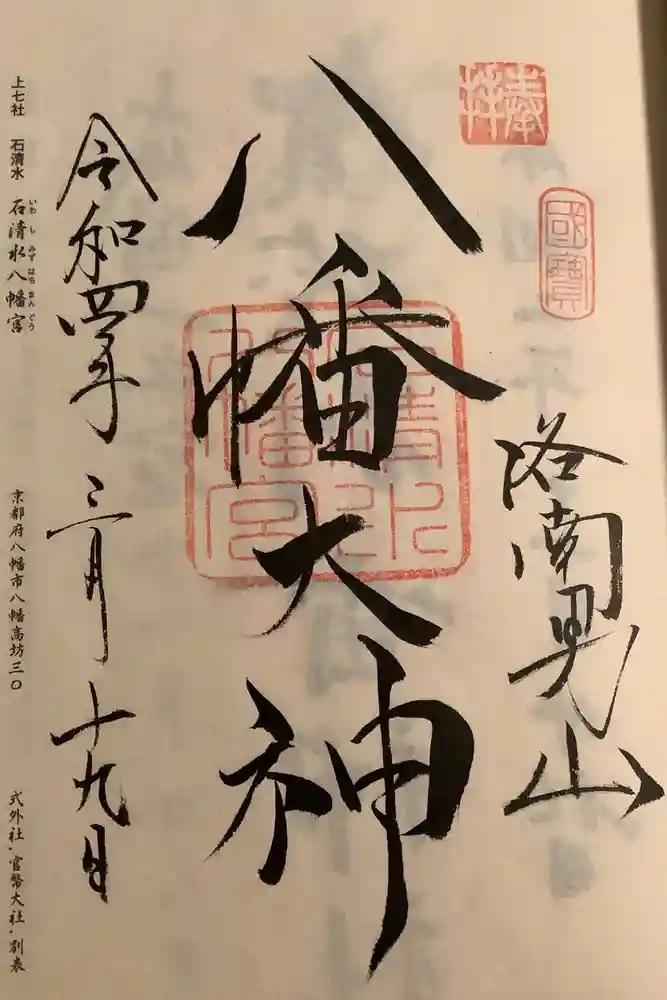 奉拝
國寶
洛南男山
八幡大神
石清水八幡宮
令和四年 三月 十九日
上七社 石清水 石清水八幡宮 京都府八幡市八幡高坊三〇 式外社・官幣大社・別表
いわ し みず はち まん ぐう